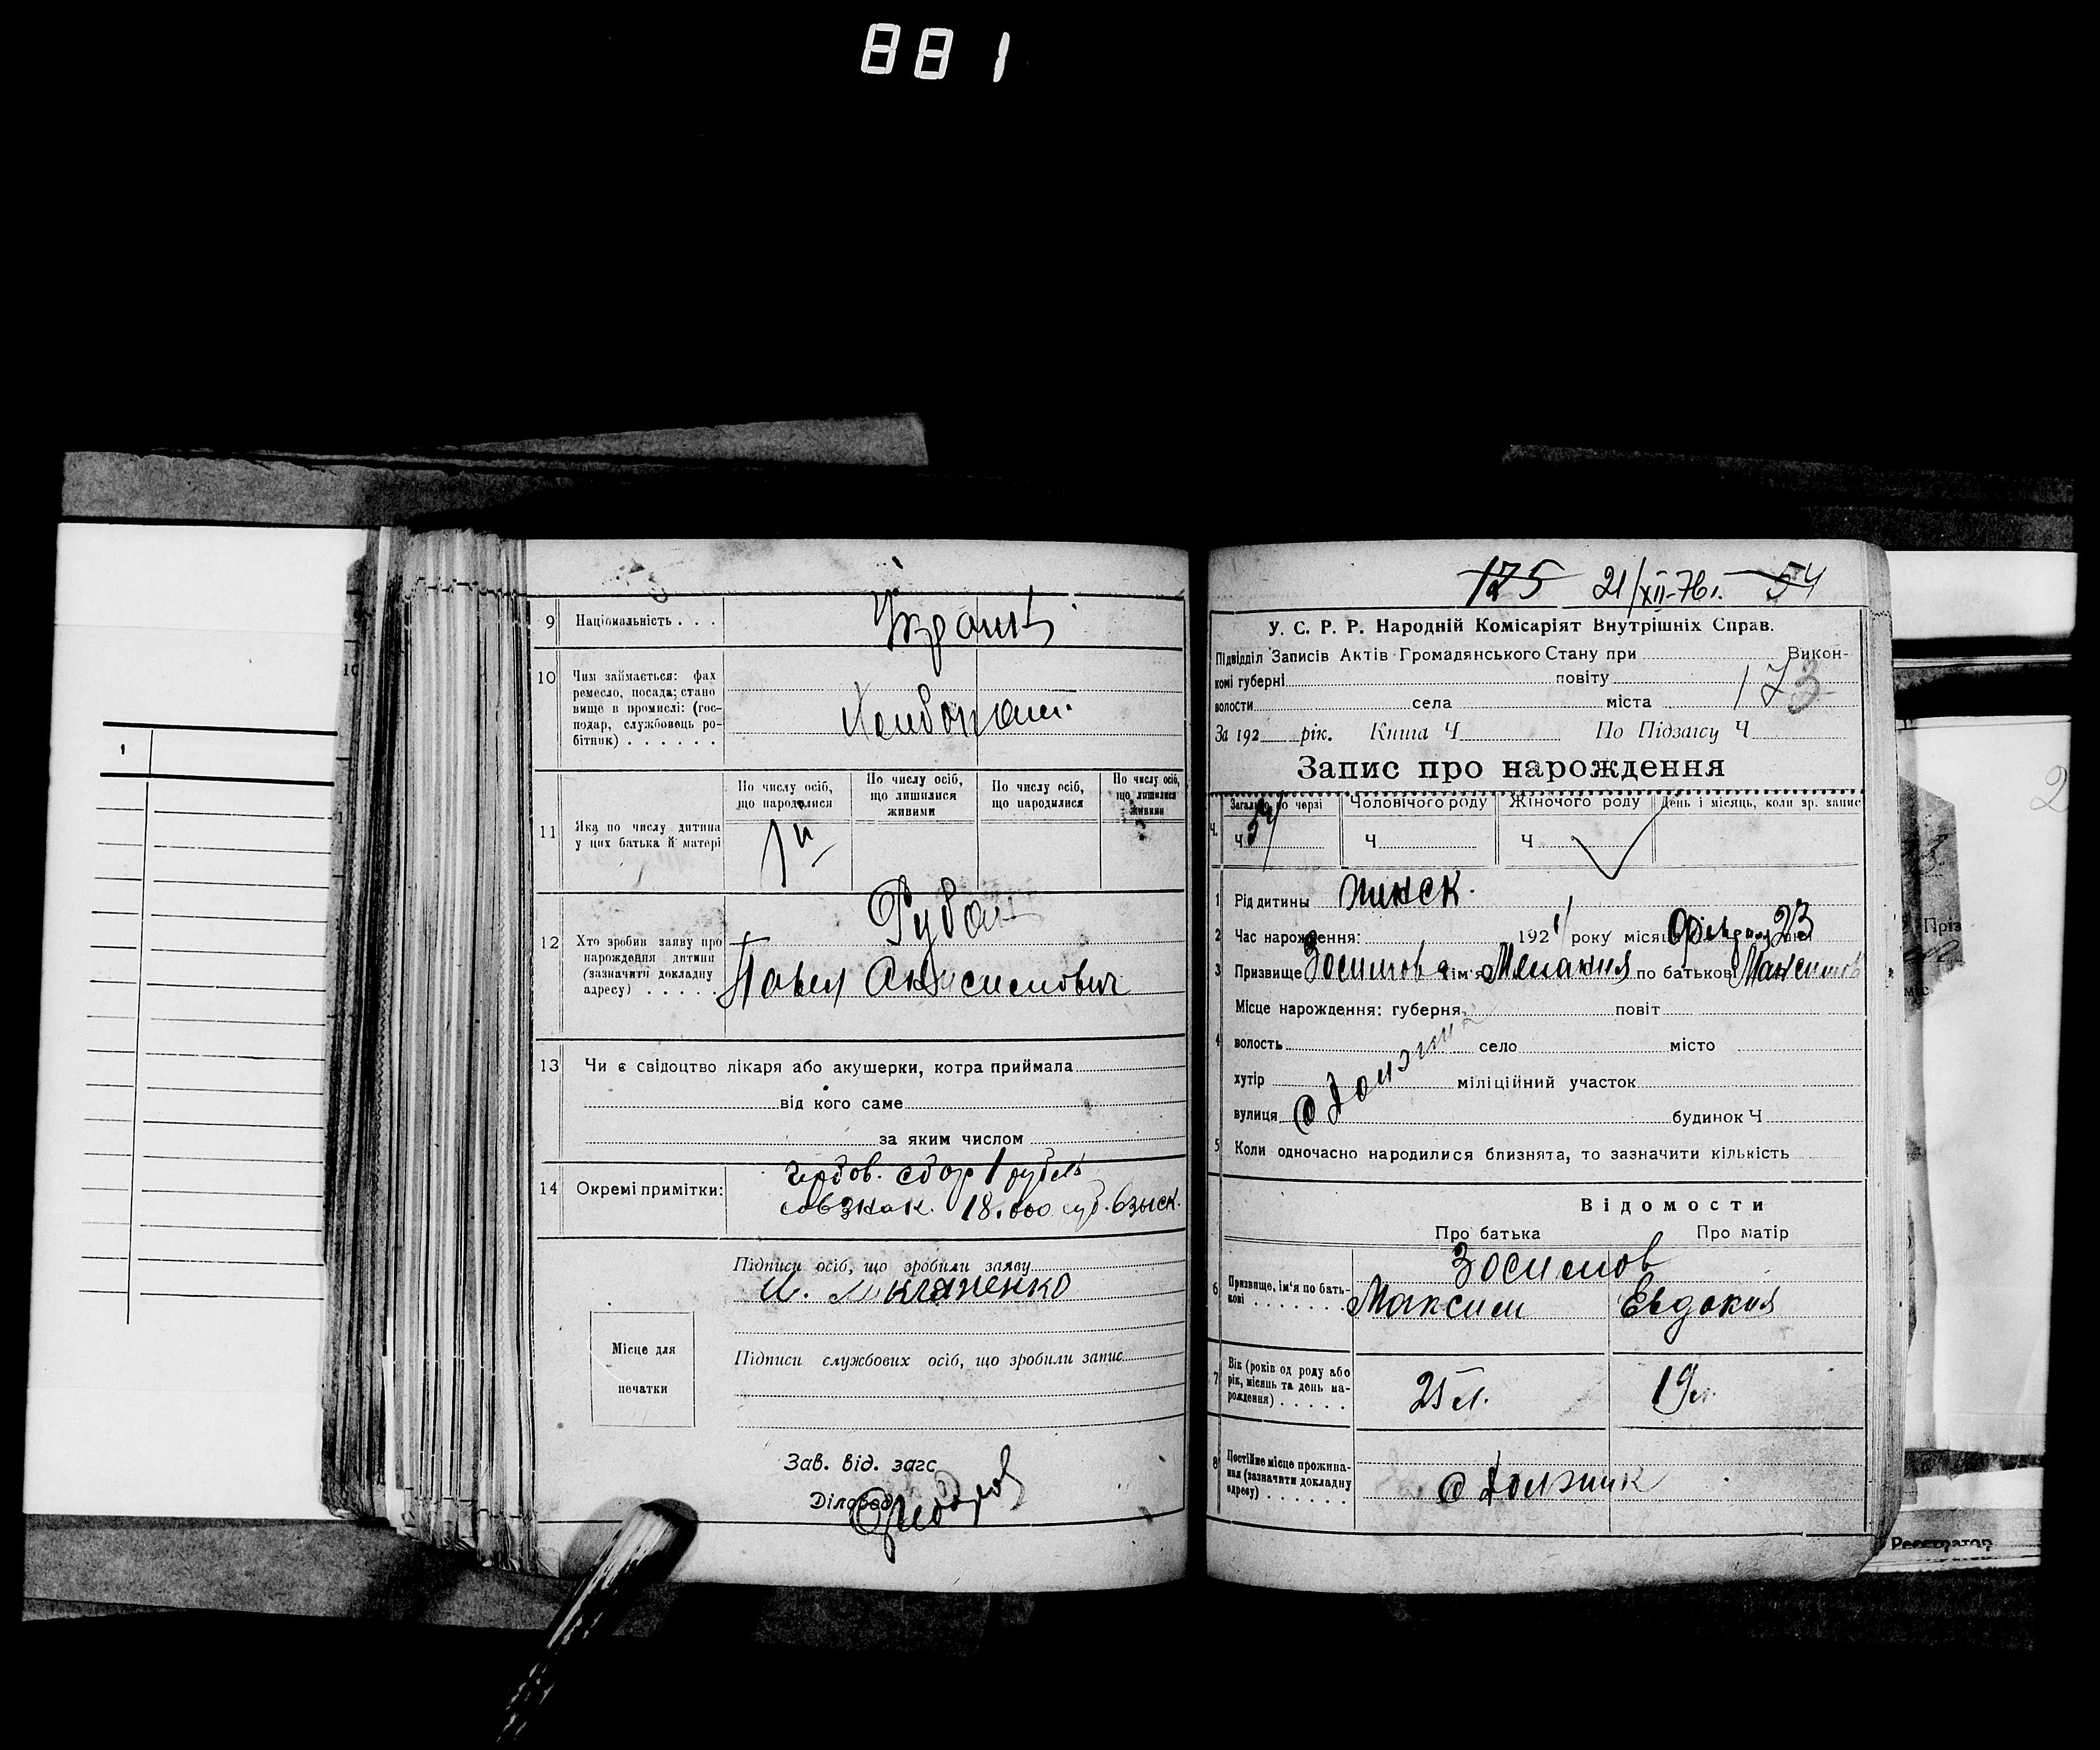 881
9 Національність . . .
10 Чим займається: фах
ремесло, посада; стано
вище в промислі: (гос-
подар, службовець ро-
бітник) . . . . . .
Хлебопаш.
По числу осіб,
що народилися
По числу осіб,
що лишилися
живими
По числу осіб,
що народилися
По числу осіб,
що лишилися
живими
11 Яка по числу дитина
у цих батька й матері
12 Хто зробив заяву про
нарождення дитини
(зазначити докладну
адресу) . . . . .
Рубан
Павел Анисимович
13 Чи є свідоцтво лікаря або акушерки, котра приймала
від кого саме
за яким числом
14 Окремі примітки:
гербов. сбор 1 рубль
совзнак. 18.000 руб. взыск.
Підписи осіб, що зробили заяву
Місце для
печатки
Підписи службових осіб, що зробили запис
Зав. від. загс
Діловод
125 21/XII-76г. 54
У. С. Р. Р. Народній Комісаріят Внутрішніх Справ.
Підвідділ Записів Актів Громадянського Стану при Викон-
комі губерні повіту
волости села міста 173
За 192 рік. Книга Ч По Підзагсу Ч
Запис про нарождення
Ч. Загально по черзі Чоловічого роду Жіночого роду День і місяць, коли зр. запис
Ч 54 Ч Ч
1 Рід дитини женск.
2 Час народження: 1924 року місяця Февраля 23 дня
3 Призвище Зосимова ім'я Мелания по батькові Максимов
Місце нарождення: губерня повіт
4 волость село місто
хутір міліційний участок
вулиця с Должик будинок Ч
5 Коли одночасно народилися близнята, то зазначити кількість
Відомости
Про батька Про матір
Зосимов
6 Призвище, ім'я по бать-
кові . . . . . . .
Максим Евдокия
7 Вік (років од роду або
рік, місяць та день на-
рождення) . . . . .
25 л. 19 л.
8 Постійне місце прожива-
ння (зазначити докладну
адресу) . . . . . .
с Должик
Реєстратор